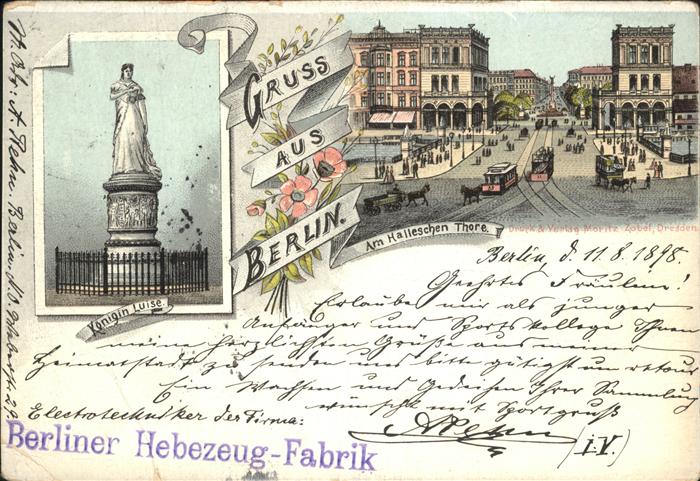 GRUSS
AUS
BERLIN.
Königin Luise.
Am Halleschen Thore.
Druck & Verlag Moritz Zobel, Dresden
Berlin, d. 11.8.1898.
Geehrtes Fräulein!
Erlaube mir als junger
Anfänger und Sports Kollege Ihnen
meine herzlichsten Grüße aus meiner
Heimatstadt zu senden und bitte gütigst um retour
Ein Wachsen und Gedeihen Ihrer Sammlung
wünscht mit Sportgruß
Electrotechniker der Firma:
(i.V.)
Berliner Hebezeug-Fabrik
Berlin N.O.